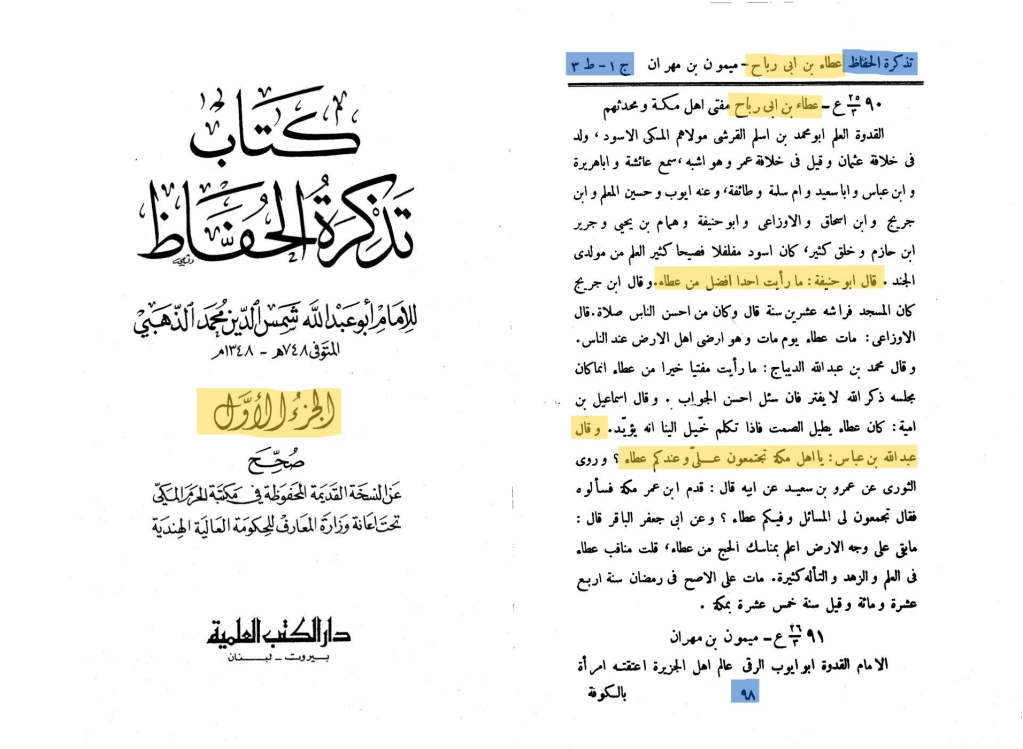 كتاب
تذكرة الحفاظ
للإمام أبو عبد الله شمس الدين محمد الذهبي
المتوفى ٧٤٨هـ - ١٣٤٨م
الجزء الأول
صحح
عن النسخة القديمة المحفوظة في مكتبة الحرم المكي
تحت اعانة وزارة المعارف للحكومة العالية الهندية
دار الكتب العلمية
بيروت - لبنان
تذكرة الحفاظ عطاء بن ابى رباح - ميمون بن مهران ج ١ - ط ٣
٩٠ ٢٥/٣ ع - عطاء بن ابى رباح مفتى اهل مكة و محدثهم
القدوة العلم ابو محمد بن اسلم القرشى مولاهم المكى الاسود ، ولد
فى خلافة عثمان و قيل فى خلافة عمر و هو اشبه ، سمع عائشة و اباهريرة
و ابن عباس و ابا سعيد و ام سلمة و طائفة، و عنه ايوب و حسين المعلم و ابن
جريج و ابن اسحاق و الاوزاعى و ابو حنيفة و همام بن يحيى و جرير
ابن حازم و خلق كثير، كان اسود مفلفلا فصيحا كثير العلم من مولدى
الجند . قال ابو حنيفة : ما رأيت احدا افضل من عطاء. و قال ابن جريج
كان المسجد فراشه عشرين سنة قال وكان من احسن الناس صلاة. قال
الاوزاعى : مات عطاء يوم مات و هو ارضى اهل الارض عند الناس.
و قال محمد بن عبد الله الديباج : ما رأيت مفتيا خيرا من عطاء انما كان
مجلسه ذكر الله لا يفتر فان سئل احسن الجواب . و قال اسماعيل بن
امية : كان عطاء يطيل الصمت فاذا تكلم خيّل الينا انه يؤيّد. و قال
عبد الله بن عباس : يا اهل مكة تجتمعون علىّ و عندكم عطاء ؟ و روى
الثورى عن عمرو بن سعيد عن ابيه قال : قدم ابن عمر مكة فسألوه
فقال تجمعون لى المسائل و فيكم عطاء ؟ و عن ابى جعفر الباقر قال :
مابقى على وجه الارض اعلم بمناسك الحج من عطاء، قلت مناقب عطاء
فى العلم و الزهد و التأله كثيرة. مات على الاصح فى رمضان سنة اربع
عشرة و مائة و قيل سنة خمس عشرة بمكة .
٩١ ٢٦/٣ ع - ميمون بن مهران
الامام القدوة ابو ايوب الرقى عالم اهل الجزيرة اعتقته امرأة
٩٨ بالكوفة